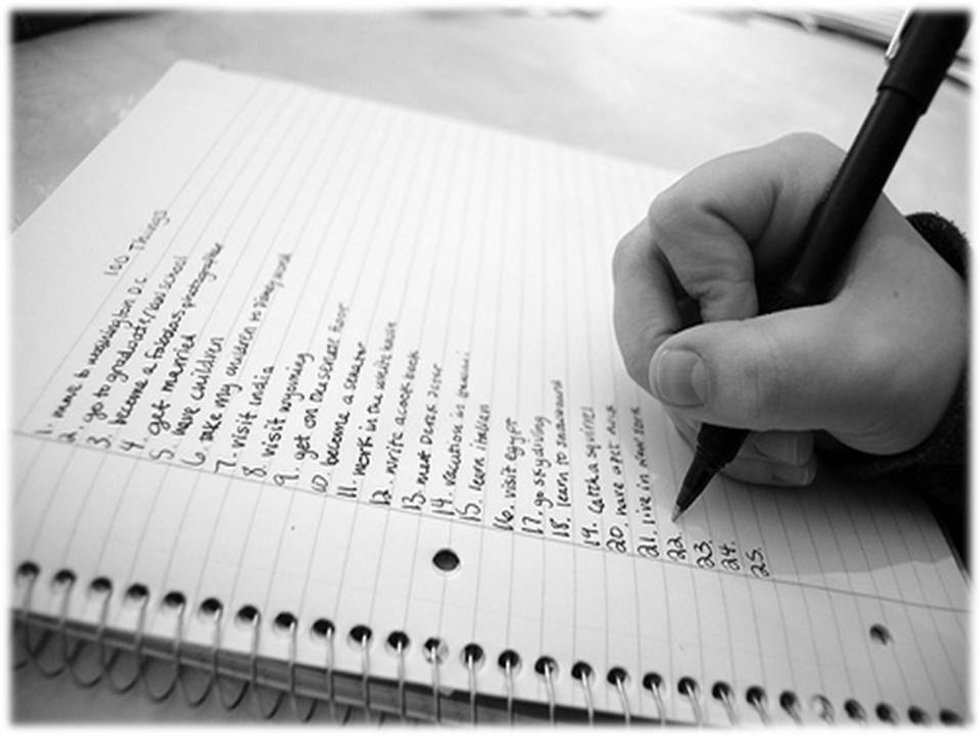 100 Things
1. move to washington D.C
2. go to graduate/law school
3. become a fabulous photographer
4. get married
5. have children
6. take my children to Disney world
7. visit India
8. visit wyoming
9. get on the senate floor
10. become a senator
11. work in the white house
12. write a cook book
13. meet Derek Jeter
14. vacation in
15. learn italian
16. visit egypt
17. go skydiving
18. learn to
19. Catch a squirrel
20. have apt in
21. live in new york
22.
23.
24.
25.